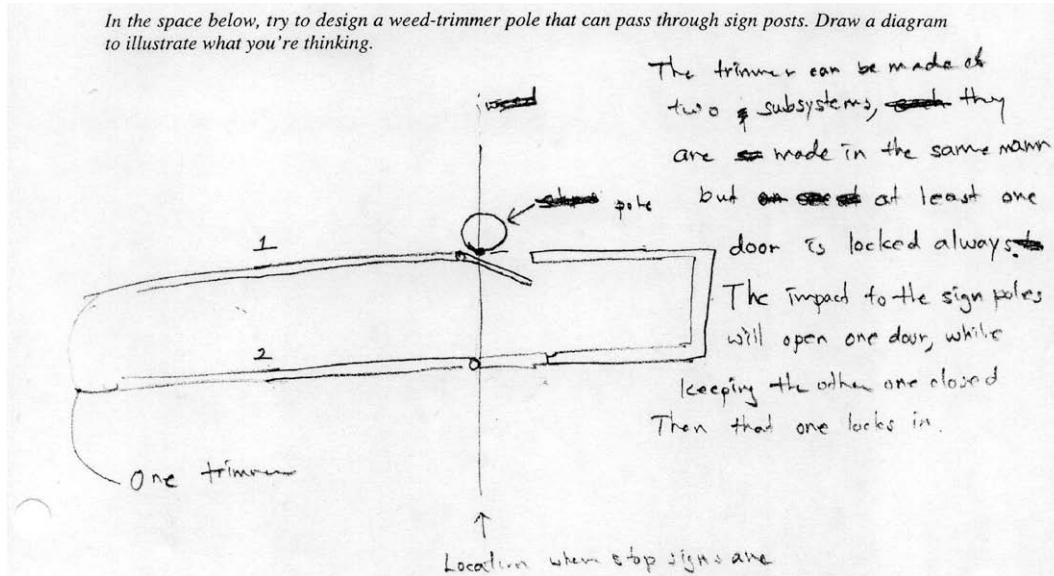 In the space below, try to design a weed-trimmer pole that can pass through sign posts. Draw a diagram
to illustrate what you're thinking.
The trimmer can be made of
two subsystems, they
are made in the same mann
but at least one
door is locked always.
The impact to the sign poles
will open one door, while
keeping the other one closed
Then that one locks in.
pole
1
2
One trimmer
Location where stop signs are